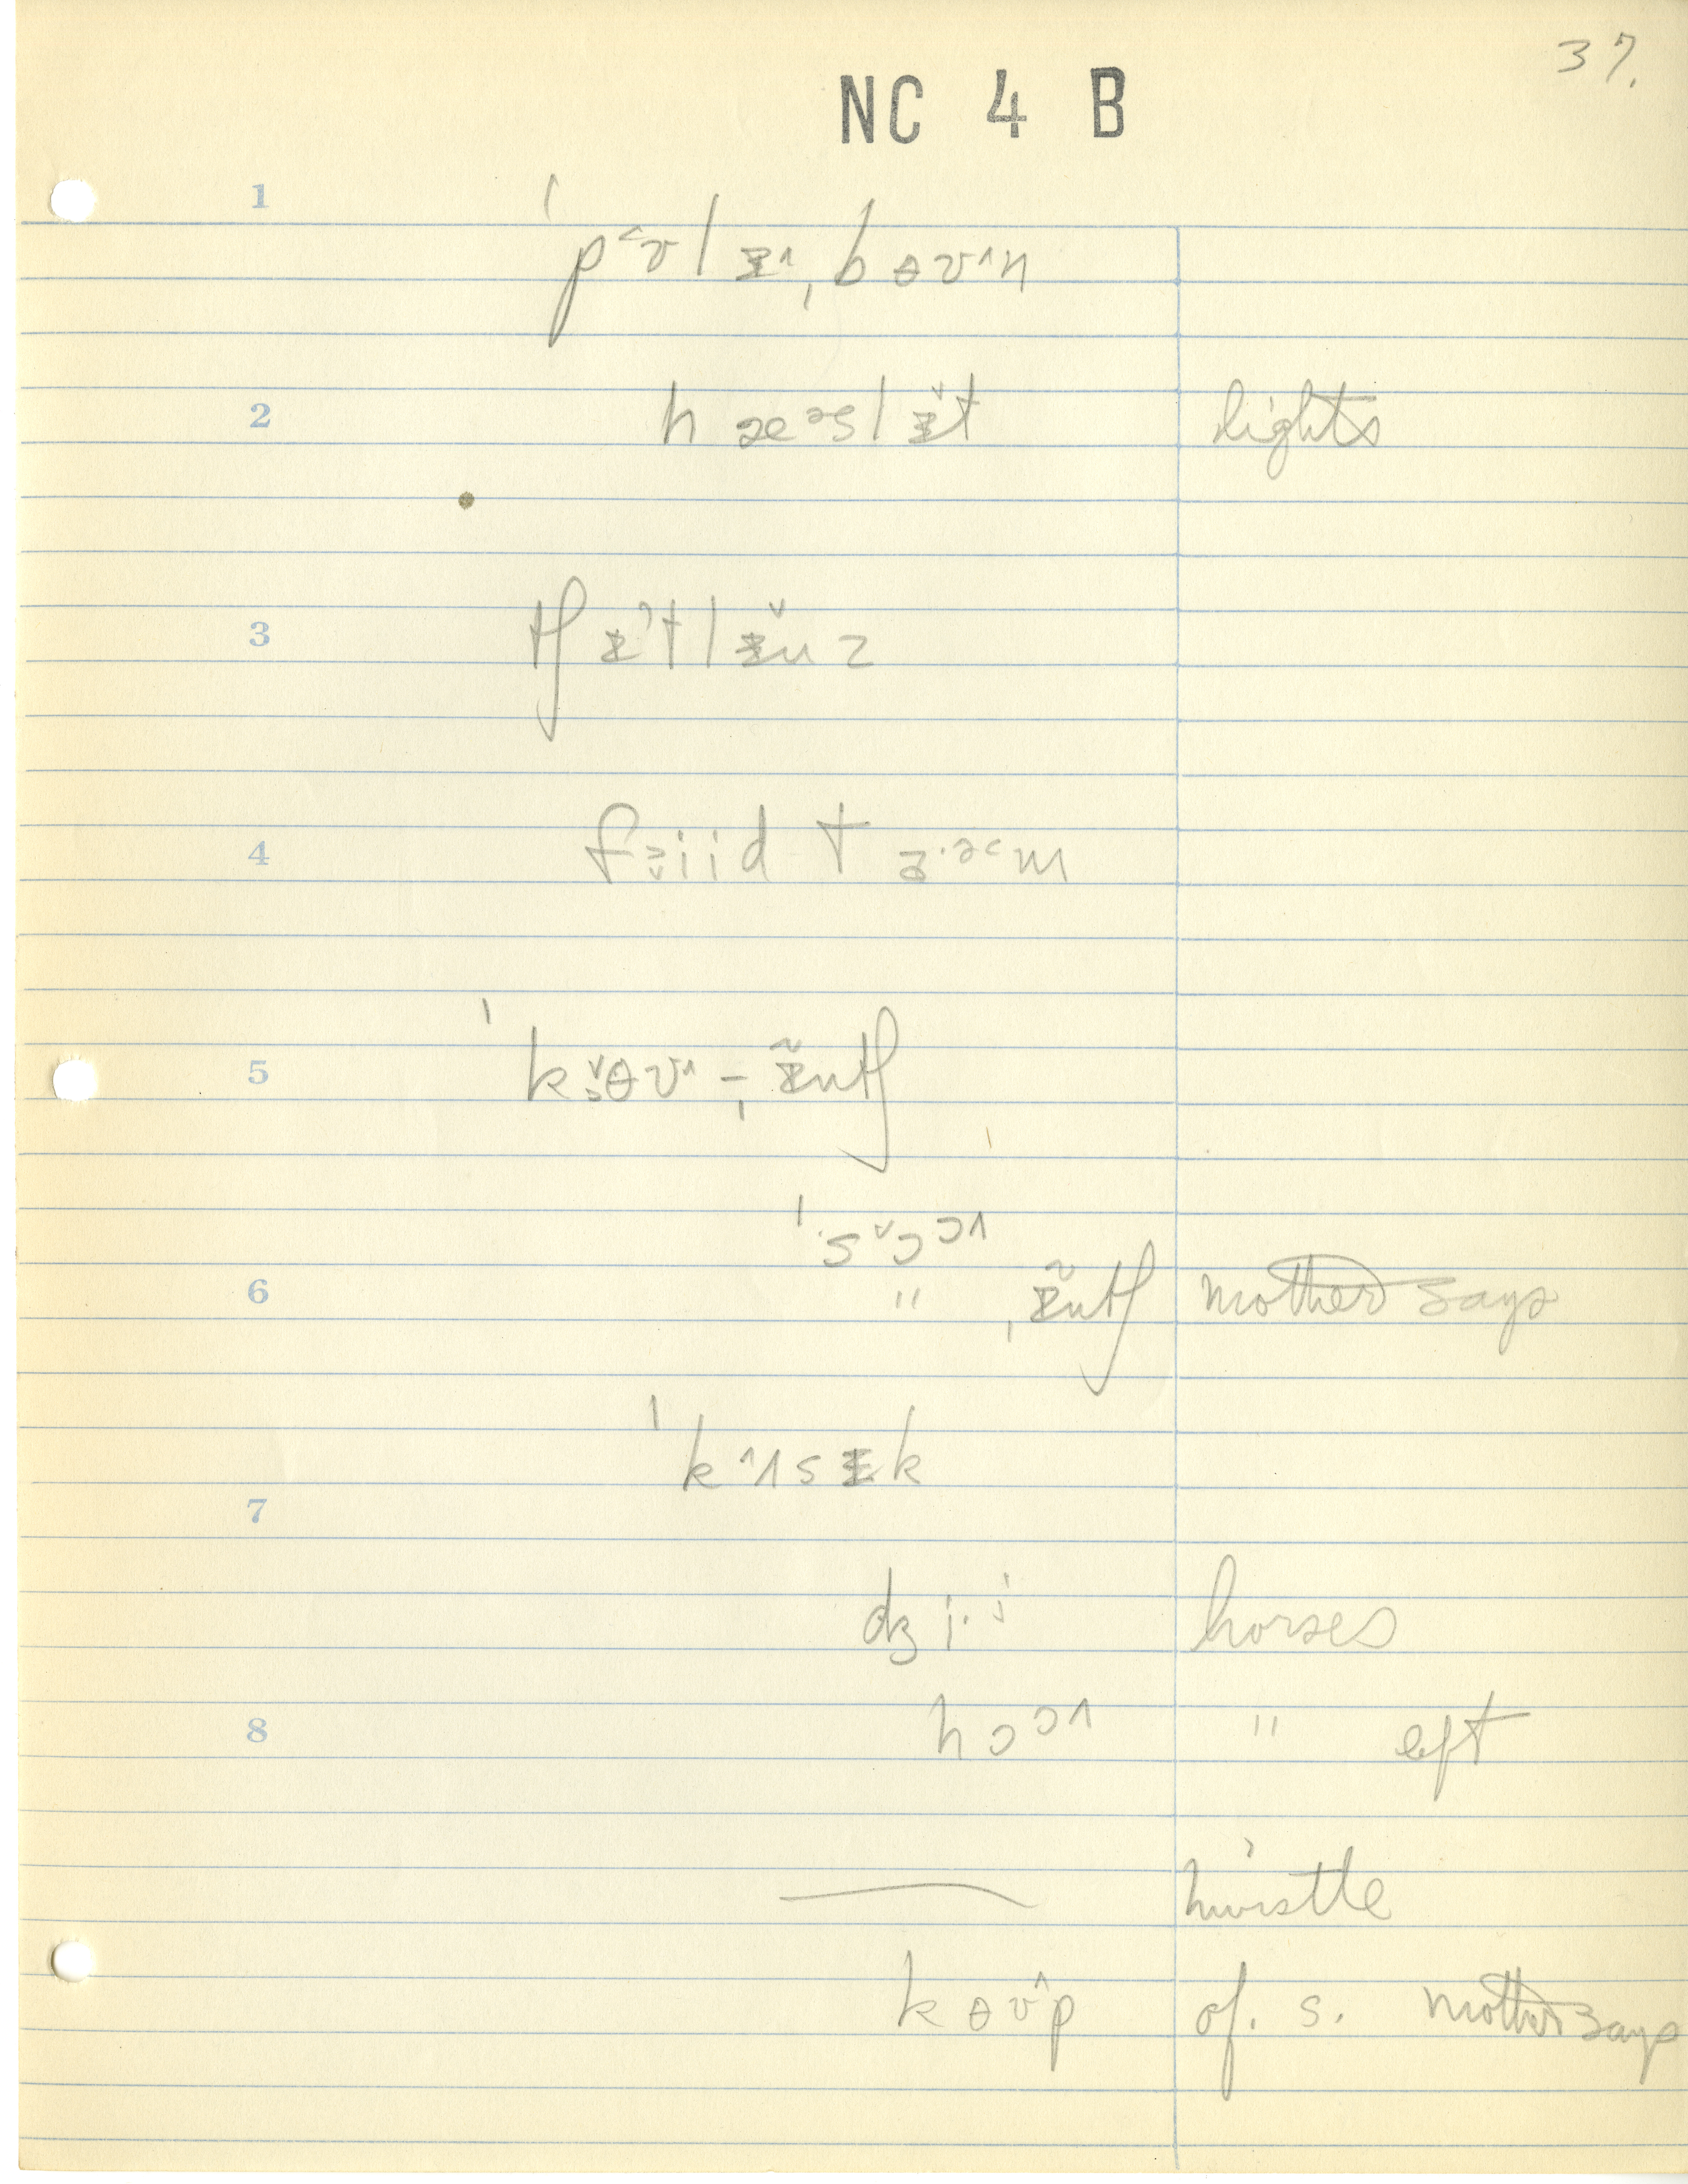 37.
NC 4 B
1
ˈpʊ˂lɪ˄ˌbɵʊ˄n
2 hæᵊslɪ̌t lights
3 tʃɪt˺lɪ̌nz
4 fiid tɜ·ᵊm
5 ˈkɵʊ˄-ˌɪ̃ntʃ
ˈsɔ˅ɔ˄
6 " ˌɪ̃ntʃ mother says
ˈkʌ˄sɪk
7
dʒi·i horses
8 hɔɔ˄ " eft
— hwistle
kɵʊ˄p of. s. mother says